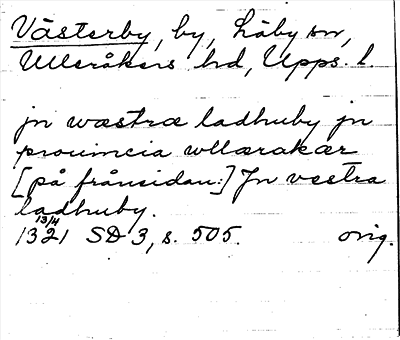 Västerby, by, Läby sn,
Ulleråkers hd, Upps. l.
jn wæstræ ladhuby jn
prouincia vllærakær
[på frånsidan:] Jn vestra
ladhuby.
13/4
1321 SD 3, s. 505. orig.